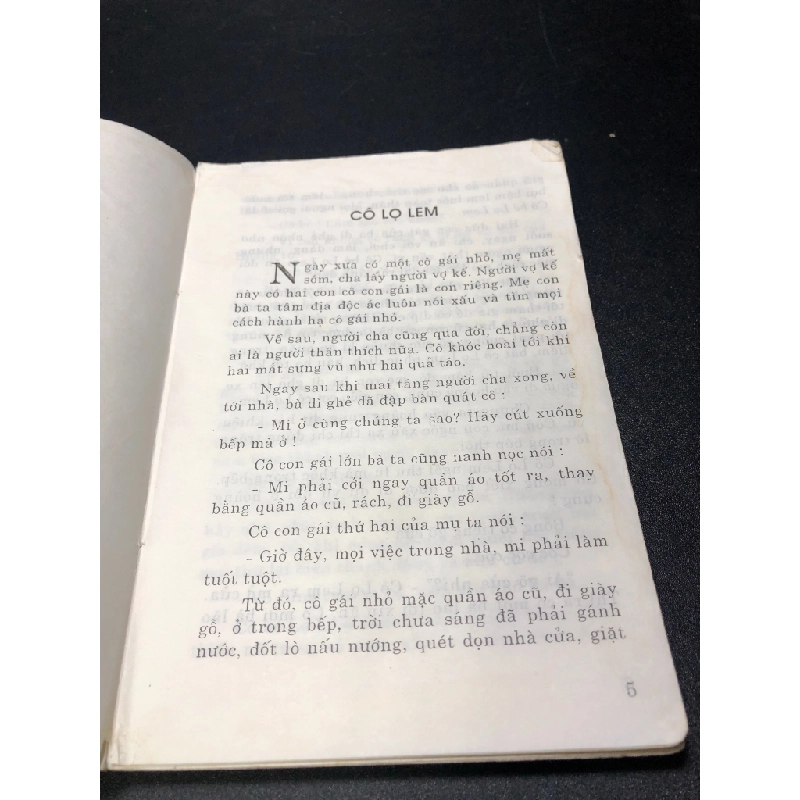 CÔ LỌ LEM
Ngày xưa có một cô gái nhỏ, mẹ mất
sớm, cha lấy người vợ kế. Người vợ kế
này có hai con cô con gái là con riêng. Mẹ con
bà ta tâm địa độc ác luôn nói xấu và tìm mọi
cách hành hạ cô gái nhỏ.
Về sau, người cha cũng qua đời, chẳng còn
ai là người thân thích nữa. Cô khóc hoài tới khi
hai mắt sưng vù như hai quả táo.
Ngay sau khi mai táng người cha xong, về
tới nhà, bà dì ghẻ đã đập bàn quát cô :
- Mi ở cùng chúng ta sao? Hãy cút xuống
bếp mà ở !
Cô con gái lớn bà ta cũng nanh nọc nói :
- Mi phải cởi ngay quần áo tốt ra, thay
bằng quần áo cũ, rách, đi giày gỗ.
Cô con gái thứ hai của mụ ta nói :
- Giờ đây, mọi việc trong nhà, mi phải làm
tuốt tuột.
Từ đó, cô gái nhỏ mặc quần áo cũ, đi giày
gỗ, ở trong bếp, trời chưa sáng đã phải gánh
nước, đốt lò nấu nướng, quét dọn nhà cửa, giặt
5